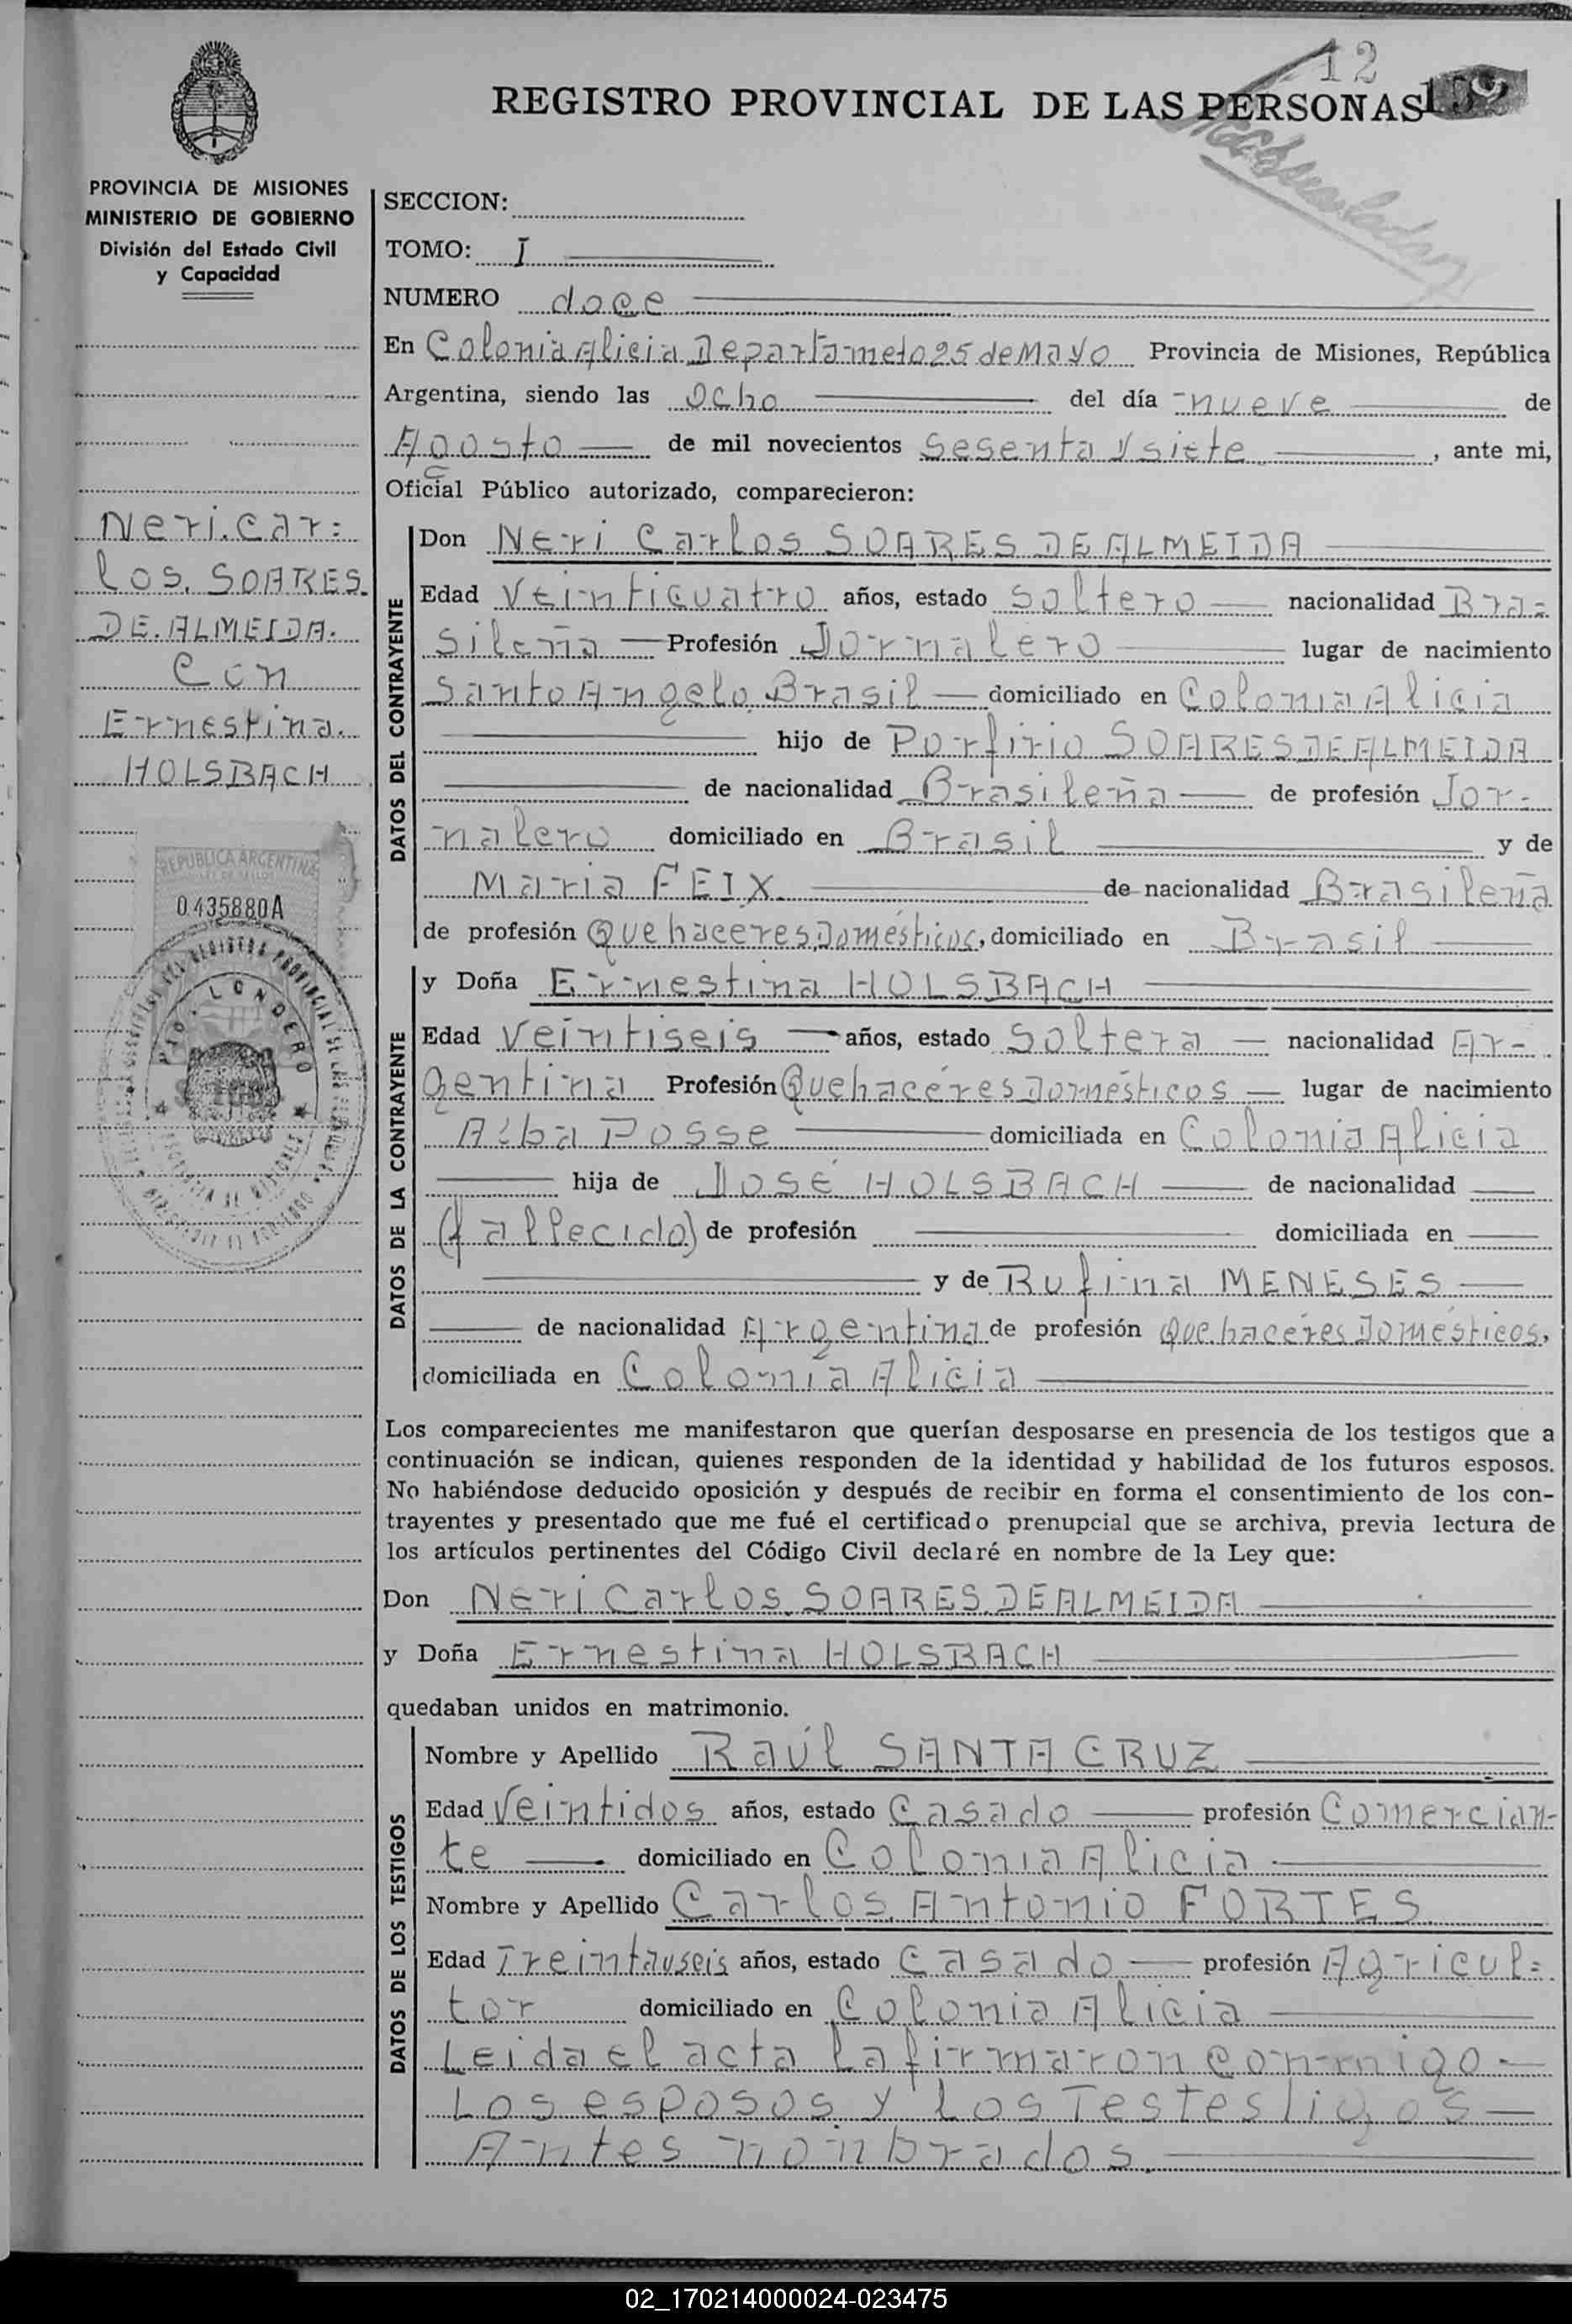 12
REGISTRO PROVINCIAL DE LAS PERSONAS
PROVINCIA DE MISIONES
MINISTERIO DE GOBIERNO
División del Estado Civil
y Capacidad
Neri Car=
los SOARES
DE ALMEIDA
Con
Ernestina
HOLSBACH
REPUBLICA ARGENTINA
0435880A
PIO LONDERO
SECCION:
TOMO: I
NUMERO doce
En Colonia Alicia Departameto 25 de Mayo Provincia de Misiones, República
Argentina, siendo las Ocho del día nueve de
Agosto de mil novecientos Sesenta y siete, ante mi,
Oficial Público autorizado, comparecieron:
DATOS DEL CONTRAYENTE
Don Neri Carlos SOARES DE ALMEIDA
Edad Veinticuatro años, estado Soltero nacionalidad Bra=
sileña Profesión Jornalero lugar de nacimiento
Santo Angelo Brasil domiciliado en Colonia Alicia
hijo de Porfirio SOARES DE ALMEIDA
de nacionalidad Brasileña de profesión Jor=
nalero domiciliado en Brasil y de
Maria FEIX de nacionalidad Brasileña
de profesión Quehaceres Domésticos, domiciliado en Brasil
DATOS DE LA CONTRAYENTE
y Doña Ernestina HOLSBACH
Edad Veintiseis años, estado Soltera nacionalidad Ar-
gentina Profesión Quehacéres Domésticos lugar de nacimiento
Alba Posse domiciliada en Colonia Alicia
hija de José HOLSBACH de nacionalidad
(fallecido) de profesión domiciliada en
y de Rufina MENESES
de nacionalidad Argentina de profesión Quehacéres Domésticos,
domiciliada en Colonia Alicia
Los comparecientes me manifestaron que querían desposarse en presencia de los testigos que a
continuación se indican, quienes responden de la identidad y habilidad de los futuros esposos.
No habiéndose deducido oposición y después de recibir en forma el consentimiento de los con-
trayentes y presentado que me fué el certificado prenupcial que se archiva, previa lectura de
los artículos pertinentes del Código Civil declaré en nombre de la Ley que:
Don Neri Carlos SOARES DE ALMEIDA
y Doña Ernestina HOLSBACH
quedaban unidos en matrimonio.
DATOS DE LOS TESTIGOS
Nombre y Apellido Raúl SANTA CRUZ
Edad Veintidos años, estado Casado profesión Comercian-
te domiciliado en Colonia Alicia
Nombre y Apellido Carlos Antonio FORTES
Edad Treintayseis años, estado Casado profesión Agricul=
tor domiciliado en Colonia Alicia
Leida el acta la firmaron conmigo
Los esposos y los Testestigos
Antes nombrados.
02_170214000024-023475